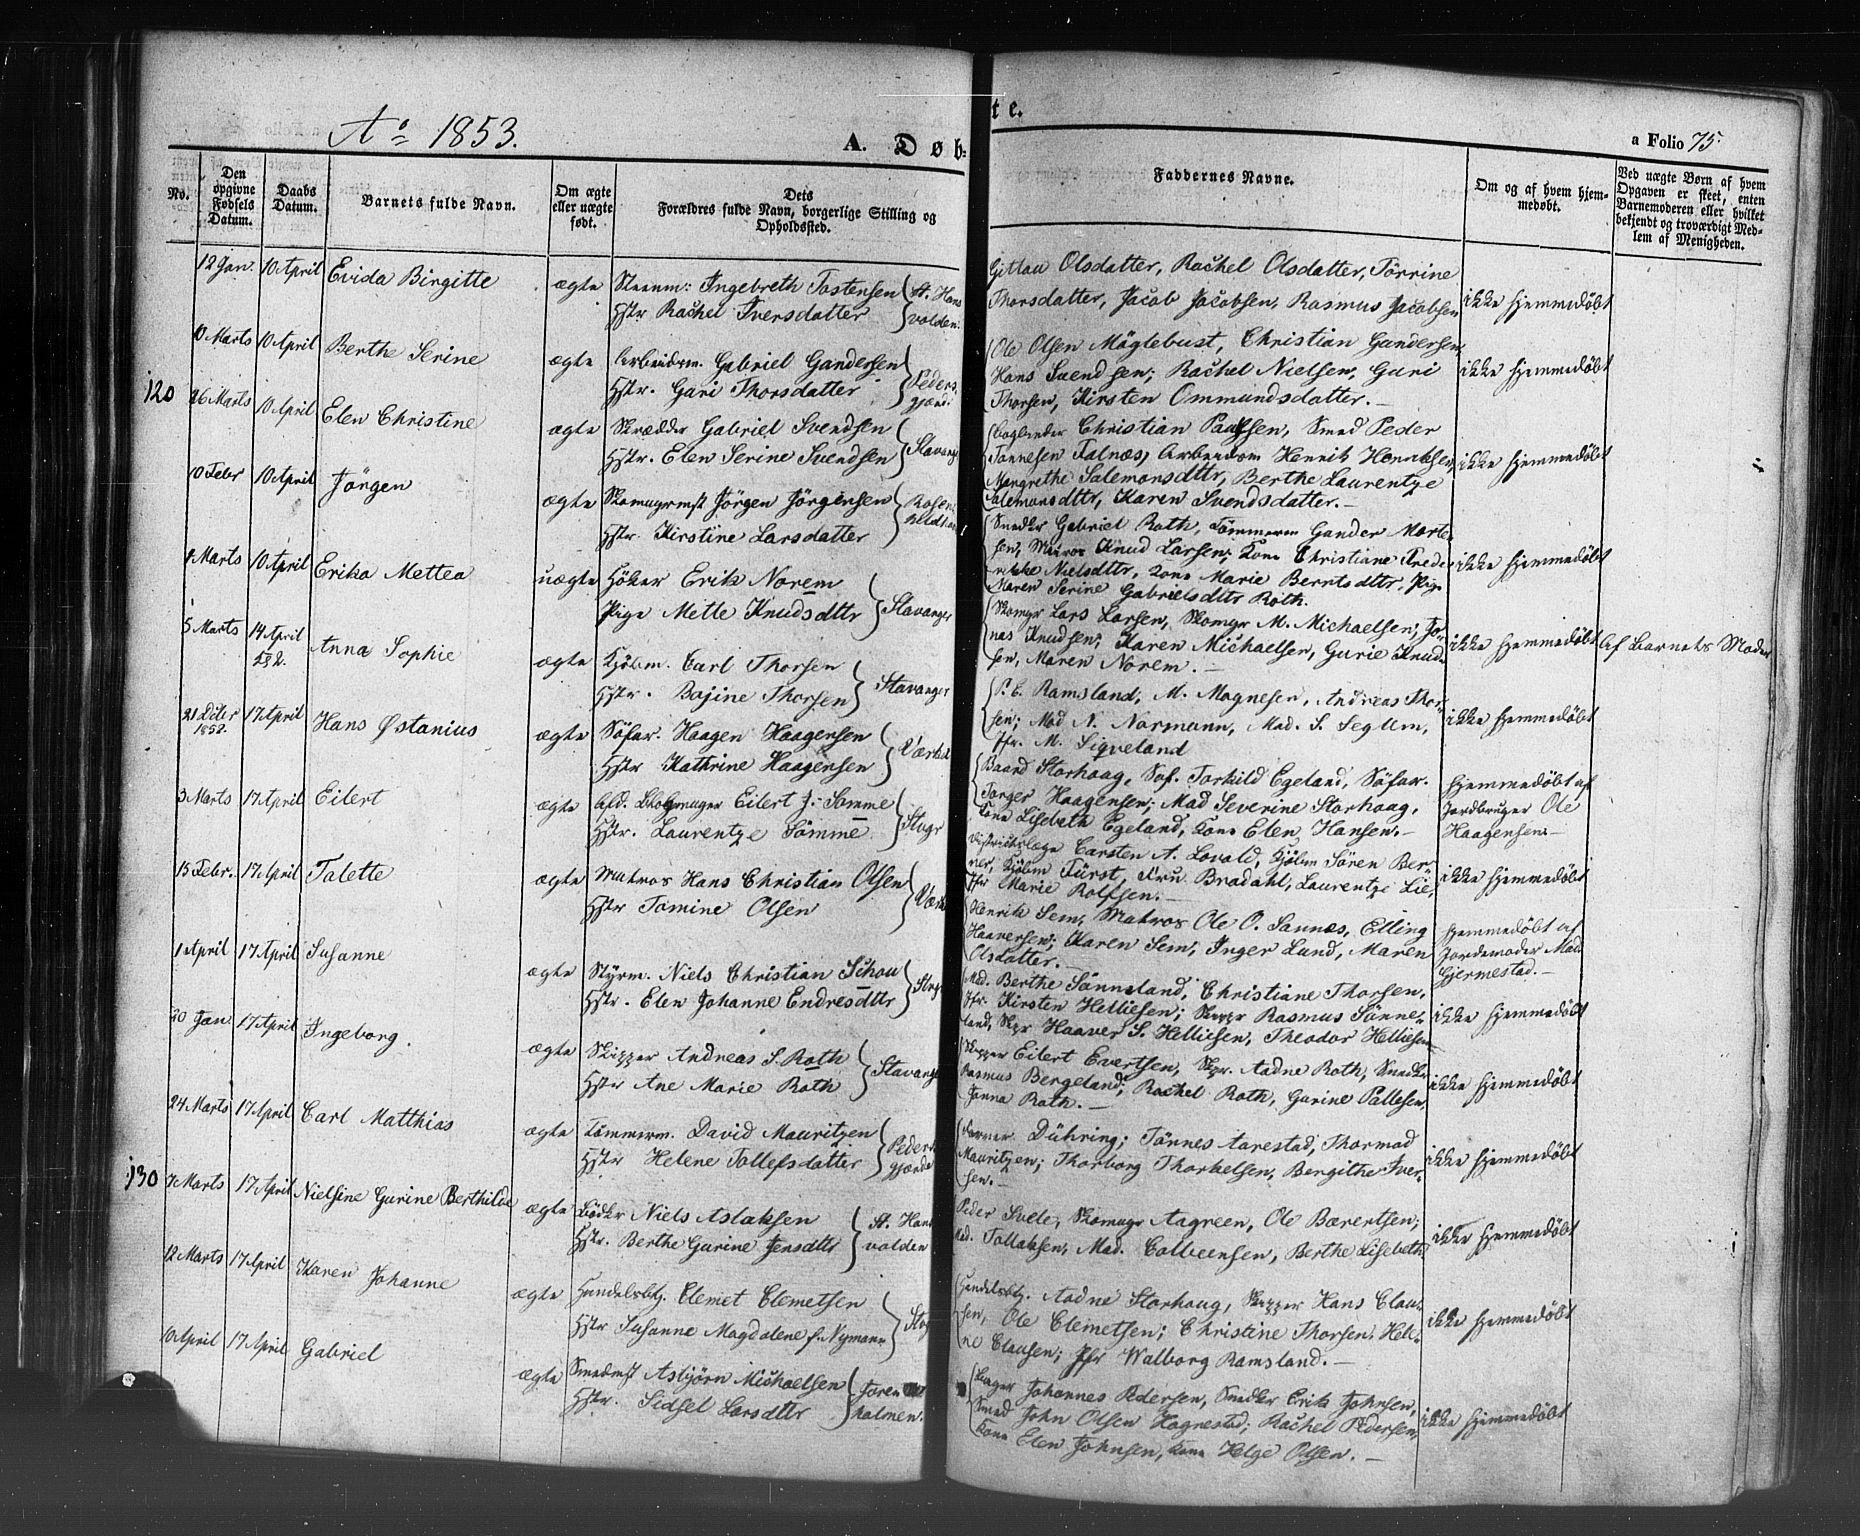 Aº 1853.
A. Døb-
te.
a Folio 75.
No.
Den opgivne Fødsels Datum.
Daabs Datum.
Barnets fulde Navn.
Om ægte eller uægte født.
Dets Forældres fulde Navn, borgerlige Stilling og Opholdssted.
Faddernes Navne.
Om og af hvem hjemmedøbt.
Ved uægte Børn af hvem Opgaven er skeet, enten Barnemoderen eller hvilket bekjendt og troværdigt Medlem af Menigheden.
12 Jan. 10 April Evida Birgitte ægte Steenm: Ingebreth Tostensen
Hstr Rachel Iversdatter St. Hans volden.
Gittau Olsdatter, Rachel Olsdatter, Tørrine
Thorsdatter, Jacob Jacobsen, Rasmus Jacobsen
ikke hjemmedøbt
10 Marts 10 April Berthe Serine ægte Arbeidsm. Gabriel Gundersen
Hstr. Guri Thorsdatter Peders gjerde
Ole Olsen Møglebust, Christian Gundersen,
Hans Svendsen; Rachel Nielsen, Guri
Thorsen, Kirsten Ommundsdatter.
ikke hjemmedøbt
120 26 Marts 10 April Elen Christine ægte Skrædder Gabriel Svendsen
Hstr. Elen Serine Svendsen Stavanger
Christian Paulsen, Smed Peder
Tønnesen Falnæs, Arbeidsm Henrik Henriksen,
Margrethe Salemonsdttr, Berthe Laurentze
Salemonsdttr, Karen Svendsdatter.
ikke hjemmedøbt
10 Febr 10 April Jörgen ægte Skomagrmst Jörgen Jörgensen
Hstr Kirstine Larsdatter
Smedkr Gabriel Roth, Tömmerm Gunder Morte-
sen, Matros Knud Larsen; Kone Christiane Frede-
rikke Nielsdttr, Kone Marie Berntsdttr, Pige
Maren Serine Gabrielsdttr Roth.
ikke hjemmedøbt
8 Marts 10 April Erika Mettea uægte Höker Erik Norem
Pige Mette Knudsdttr Stavanger
Skomgr Lars Larsen, Skomgr M. Michaelsen; Jo-
nas Knudsen; Karen Michaelsen, Gurie Knud-
sen, Maren Norem.
ikke hjemmedøbt Af Barnets Moder
5 Marts 14 April 1852. Anna Sophie ægte Kjöbm. Carl Thorsen
Hstr. Bojine Thorsen Stavanger
P. E. Ramsland, M. Magnesen, Andreas Thor-
sen; Mad N. Normann, Mad. S. Seglem,
Jfr. M. Sigveland
ikke hjemmedøbt
21 Dcbr 1852. 17 April Hans Østanius ægte Söfar. Haagen Haagensen
Hstr Kathrine Haagensen
Baard Storhaag, Sof. Torkild Egeland, Söfar.
Torger Haagensen; Mad Severine Storhaag,
Kone Lisebeth Egeland, Kone Elen Hansen.
hjemmedøbt af
Jordbruger Ole
Haagensen
3 Marts 17 April Eilert ægte Eilert J. Sømme
Hstr. Laurentze Sømme Stvgr
Districtslæge Carsten A. Lovold, Kjöbm Sören Ber-
ner, Kjöbm Fürst, Fru Bradahl, Laurentze Lie,
Jfr Marie Rolfsen.
ikke hjemmedøbt
15 Febr. 17 April Talette ægte Matros Hans Christian Olsen
Hstr Tomine Olsen
Henrik Sem, Matros Ole O. Sannæs, Elling
Haaversen; Karen Sem, Inger Lund, Maren
Olsdatter.
hjemmedøbt af
Jordemoder Mad.
Gjermestad.
1 April 17 April Susanne ægte Styrm. Niels Christian Schou
Hstr. Elen Johanne Endresdttr Stvgr
Mad. Berthe Sönneland, Christiane Thorsen,
Jfr. Kirsten Helliesen; Skppr Rasmus Sönne-
land, Skpr Haaver S. Helliesen, Theodor Helliesen
ikke hjemmedøbt
20 Jan. 17 April Ingeborg. ægte Skipper Andreas S. Roth
Hstr Ane Marie Roth Stavanger
Skipper Eilert Evertsen, Skpr. Aadne Roth, Smedkr
Rasmus Bergeland; Rachel Roth, Gurine Pallesen,
Janna Roth.
ikke hjemmedøbt
24 Marts 17 April Carl Matthias ægte Tömmerm. David Mauritzen
Hstr Helene Tollefsdatter Peders gjerde
Farver Dühring; Tönnes Aarestad, Thormod
Mauritzen; Thorborg Thorkelsen, Bergithe Iver-
sen.
ikke hjemmedøbt
130 7 Marts 17 April Nielsine Gurine Berthilde ægte Bödkr Niels Aslaksen
Hstr. Berthe Gurine Jensdttr St. Hans volden
Peder Svele, Skomagr Aagreen, Ole Bærentsen;
Mad. Tollaksen, Mad. Colbeensen, Berthe Lisebeth
ikke hjemmedøbt
12 Marts 17 April Karen Johanne ægte Handelsbtj. Clemet Clemetsen
Hstr Susanne Magdalene f. Nymann Stvgr
Handelsbtj. Aadne Storhaug, Skipper Hans Clau-
sen, Ole Clemetsen; Christine Thorsen, Hele-
ne Clausen; Jfr Walborg Ramsland.
ikke hjemmedøbt
10 April 17 April Gabriel ægte Smedmst Asbjørn Michaelsen
Hstr. Sidsel Larsdttr holmen.
Johannes Pedersen, Smedkr Erik Johnsen,
Smed John Olsen Hognestad; Rachel Pedersen,
Kone Elen Johnsen, Kone Helge Olsen.
ikke hjemmedøbt